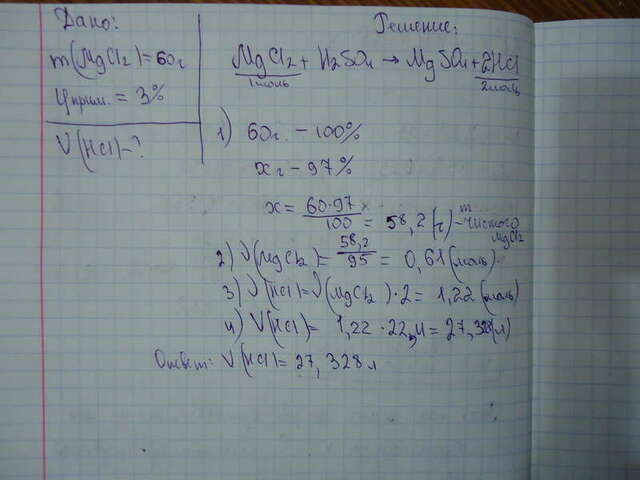 Дано:
m(MgCl2)=60г
ηприм. = 3%
V(HCl)-?
Решение:
MgCl2 + H2SO4 → MgSO4 + 2HCl
1моль 2моль
1) 60г - 100%
xг - 97%
x = 60·97 / 100 = 58,2(г) - m чистого MgCl2
2) ν(MgCl2) = 58,2 / 95 = 0,61(моль)
3) ν(HCl)=ν(MgCl2)·2 = 1,22(моль)
4) V(HCl) = 1,22·22,4 = 27,328(л)
Ответ: V(HCl) = 27,328 л